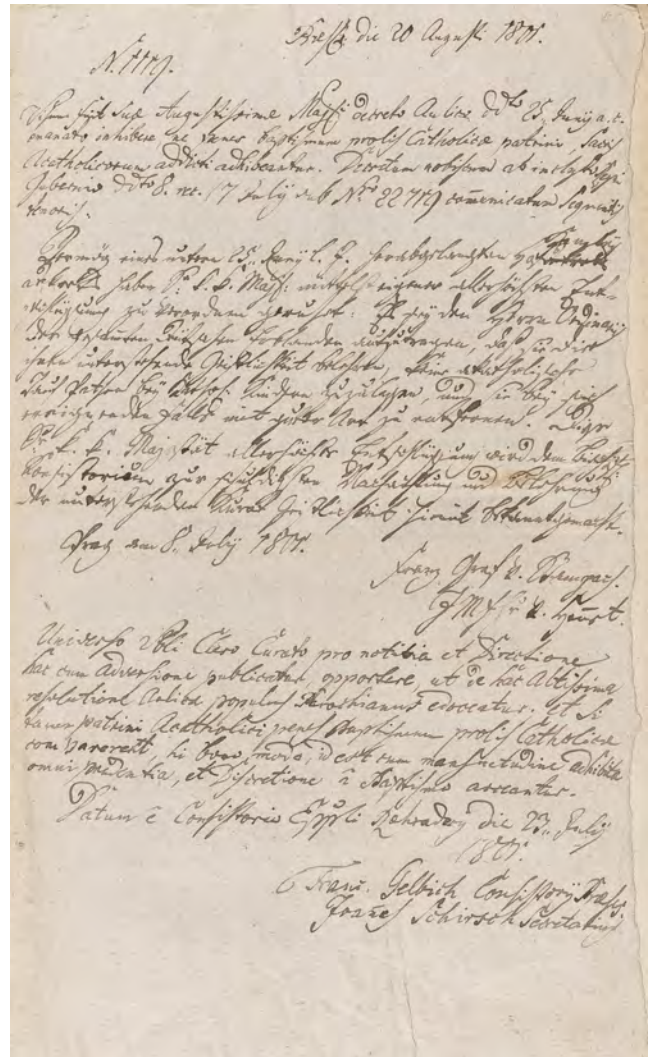 die 20 Augusti 1801.
N. 1119.
Suæ Augustissimæ Majst decreto Aulico ddto 25. Junij a. c.
emanato inhibere ne penes Baptismum prolis Catholicæ patrini, Sacris
Acatholicorum addicti adhibeantur. Decretum ab inclyto
Gubernio ddto 8. rec. 17 July sub Nro 22719 communicatum Sequentis
tenoris.
Vermög eines untern 25. Juny l. J. herabgelangten
haben Se. k. k. Majst: mittelst eigener allerhöchsten Ent-
schließung zu verordnen geruhet: Es sey den Herrn Ordinarien
der gesammten aufzutragen, daß sie die
ihnen unterstehende Geistlichkeit belehren, keine akatholische
Tauf Pathen bey kathol. Kindern zuzulassen, und sie bey sich
ereignenden Falle mit guter Art zu entfernen. Diese
Sr. k. k. Majestät allerhöchste Entschließung wird dem
Konsistorium zur schuldigsten Nachachtung und Belehrung
der unterstehenden Kurat Geistlichkeit hiemit bekanntgemacht.
Prag am 8. July 1801.
Franz Graf v.
Universo Vbli Clero Curato pro notitia et Directione
hæc cum Adversione publicatur, opportere, ut de hac Altissima
resolutione Aulica populus Parochianus edoceatur. et Si
tamen patrini Acatholici penes Baptismum prolis Catholicæ
comparerent, hi bono modo, id est cum mansuetudine adhibita
omni prudentia, et Discretione a Baptismo arceantur.
Datum e Consistorio Eppli die 23. July
1801.
Franc. Gelbich Consistorij Præses
Joanes Schirsch Secretarius